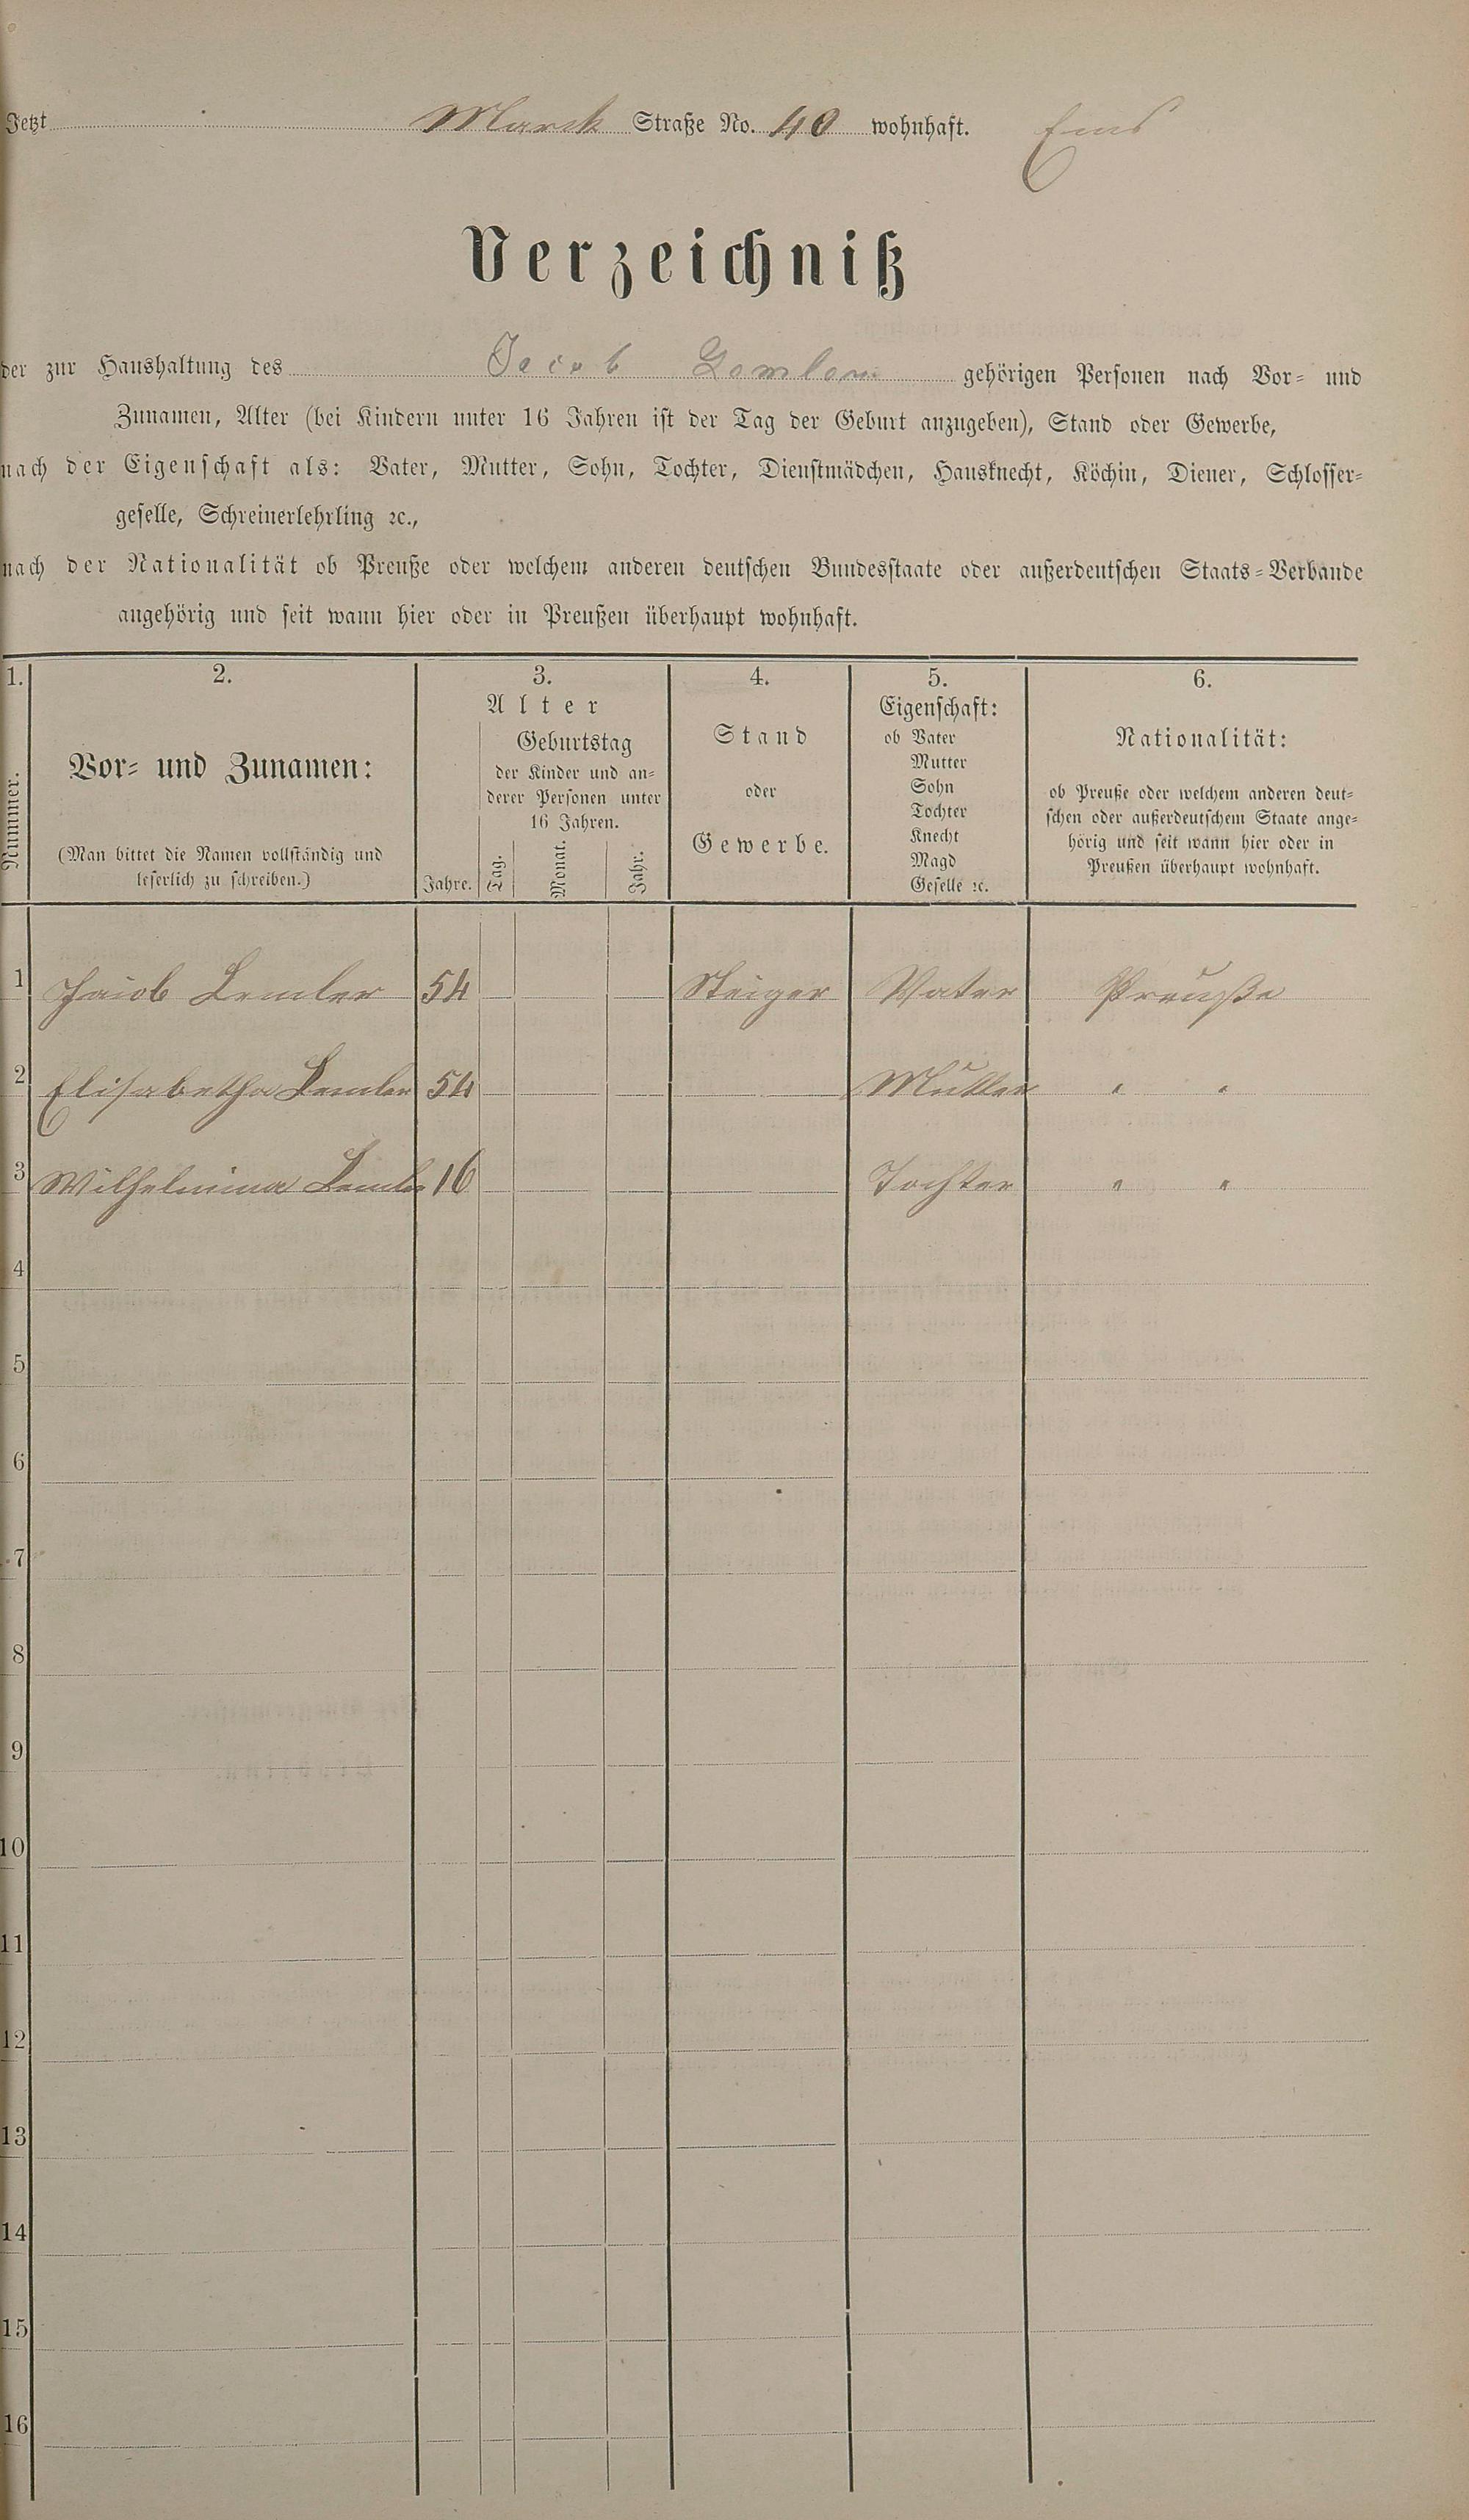 Jetzt Marck Straße No. 40 wohnhaft. Ems
Verzeichniß
der zur Haushaltung des Jacob Lemler gehörigen Personen nach Vor- und
Zunamen, Alter (bei Kindern unter 16 Jahren ist der Tag der Geburt anzugeben), Stand oder Gewerbe,
nach der Eigenschaft als: Vater, Mutter, Sohn, Tochter, Dienstmädchen, Hausknecht, Köchin, Diener, Schlosser-
geselle, Schreinerlehrling ꝛc.,
nach der Nationalität ob Preuße oder welchem anderen deutschen Bundesstaate oder außerdeutschen Staats-Verbande
angehörig und seit wann hier oder in Preußen überhaupt wohnhaft.
1.
Nummer.
2.
Vor- und Zunamen:
(Man bittet die Namen vollständig und
leserlich zu schreiben.)
3.
Alter
Jahre.
Geburtstag
der Kinder und an-
derer Personen unter
16 Jahren.
Tag.
Monat.
Jahr.
4.
Stand
oder
Gewerbe.
5.
Eigenschaft:
ob Vater
Mutter
Sohn
Tochter
Knecht
Magd
Geselle ꝛc.
6.
Nationalität:
ob Preuße oder welchem anderen deut-
schen oder außerdeutschem Staate ange-
hörig und seit wann hier oder in
Preußen überhaupt wohnhaft.
1 Jacob Lemler 54 Steiger Vater Preuße
2 Elisabetha Lemler 54 Mutter " "
3 Wilhelmina Lemler 16 Tochter " "
4
5
6
7
8
9
10
11
12
13
14
15
16